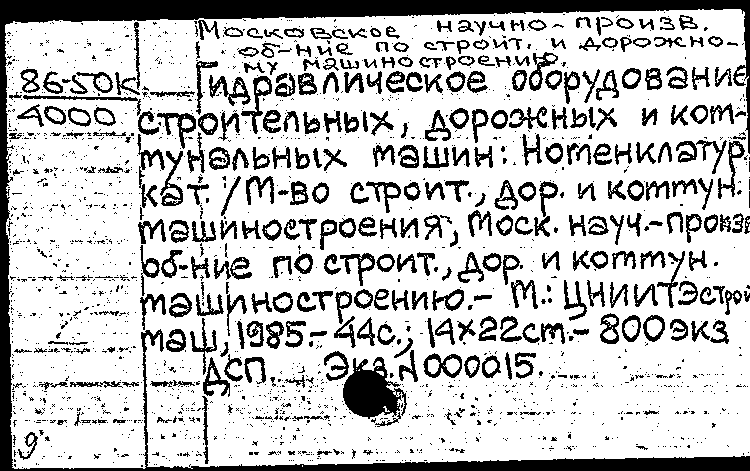 Московское научно-произв.
об-ние по строит. и дорожно-
му машиностроению.
86-50К Гидравлическое оборудование
4000 строительных, дорожных и ком-
мунальных машин: Номенклатур.
кат. / М-во строит., дор. и коммун.
машиностроения, Моск. науч.-произв.
об-ние по строит., дор. и коммун.
машиностроению.- М.: ЦНИИТЭстрой
маш, 1985.- 44с.; 14×22см.- 800экз
ДСП. Экз.N000015.
9